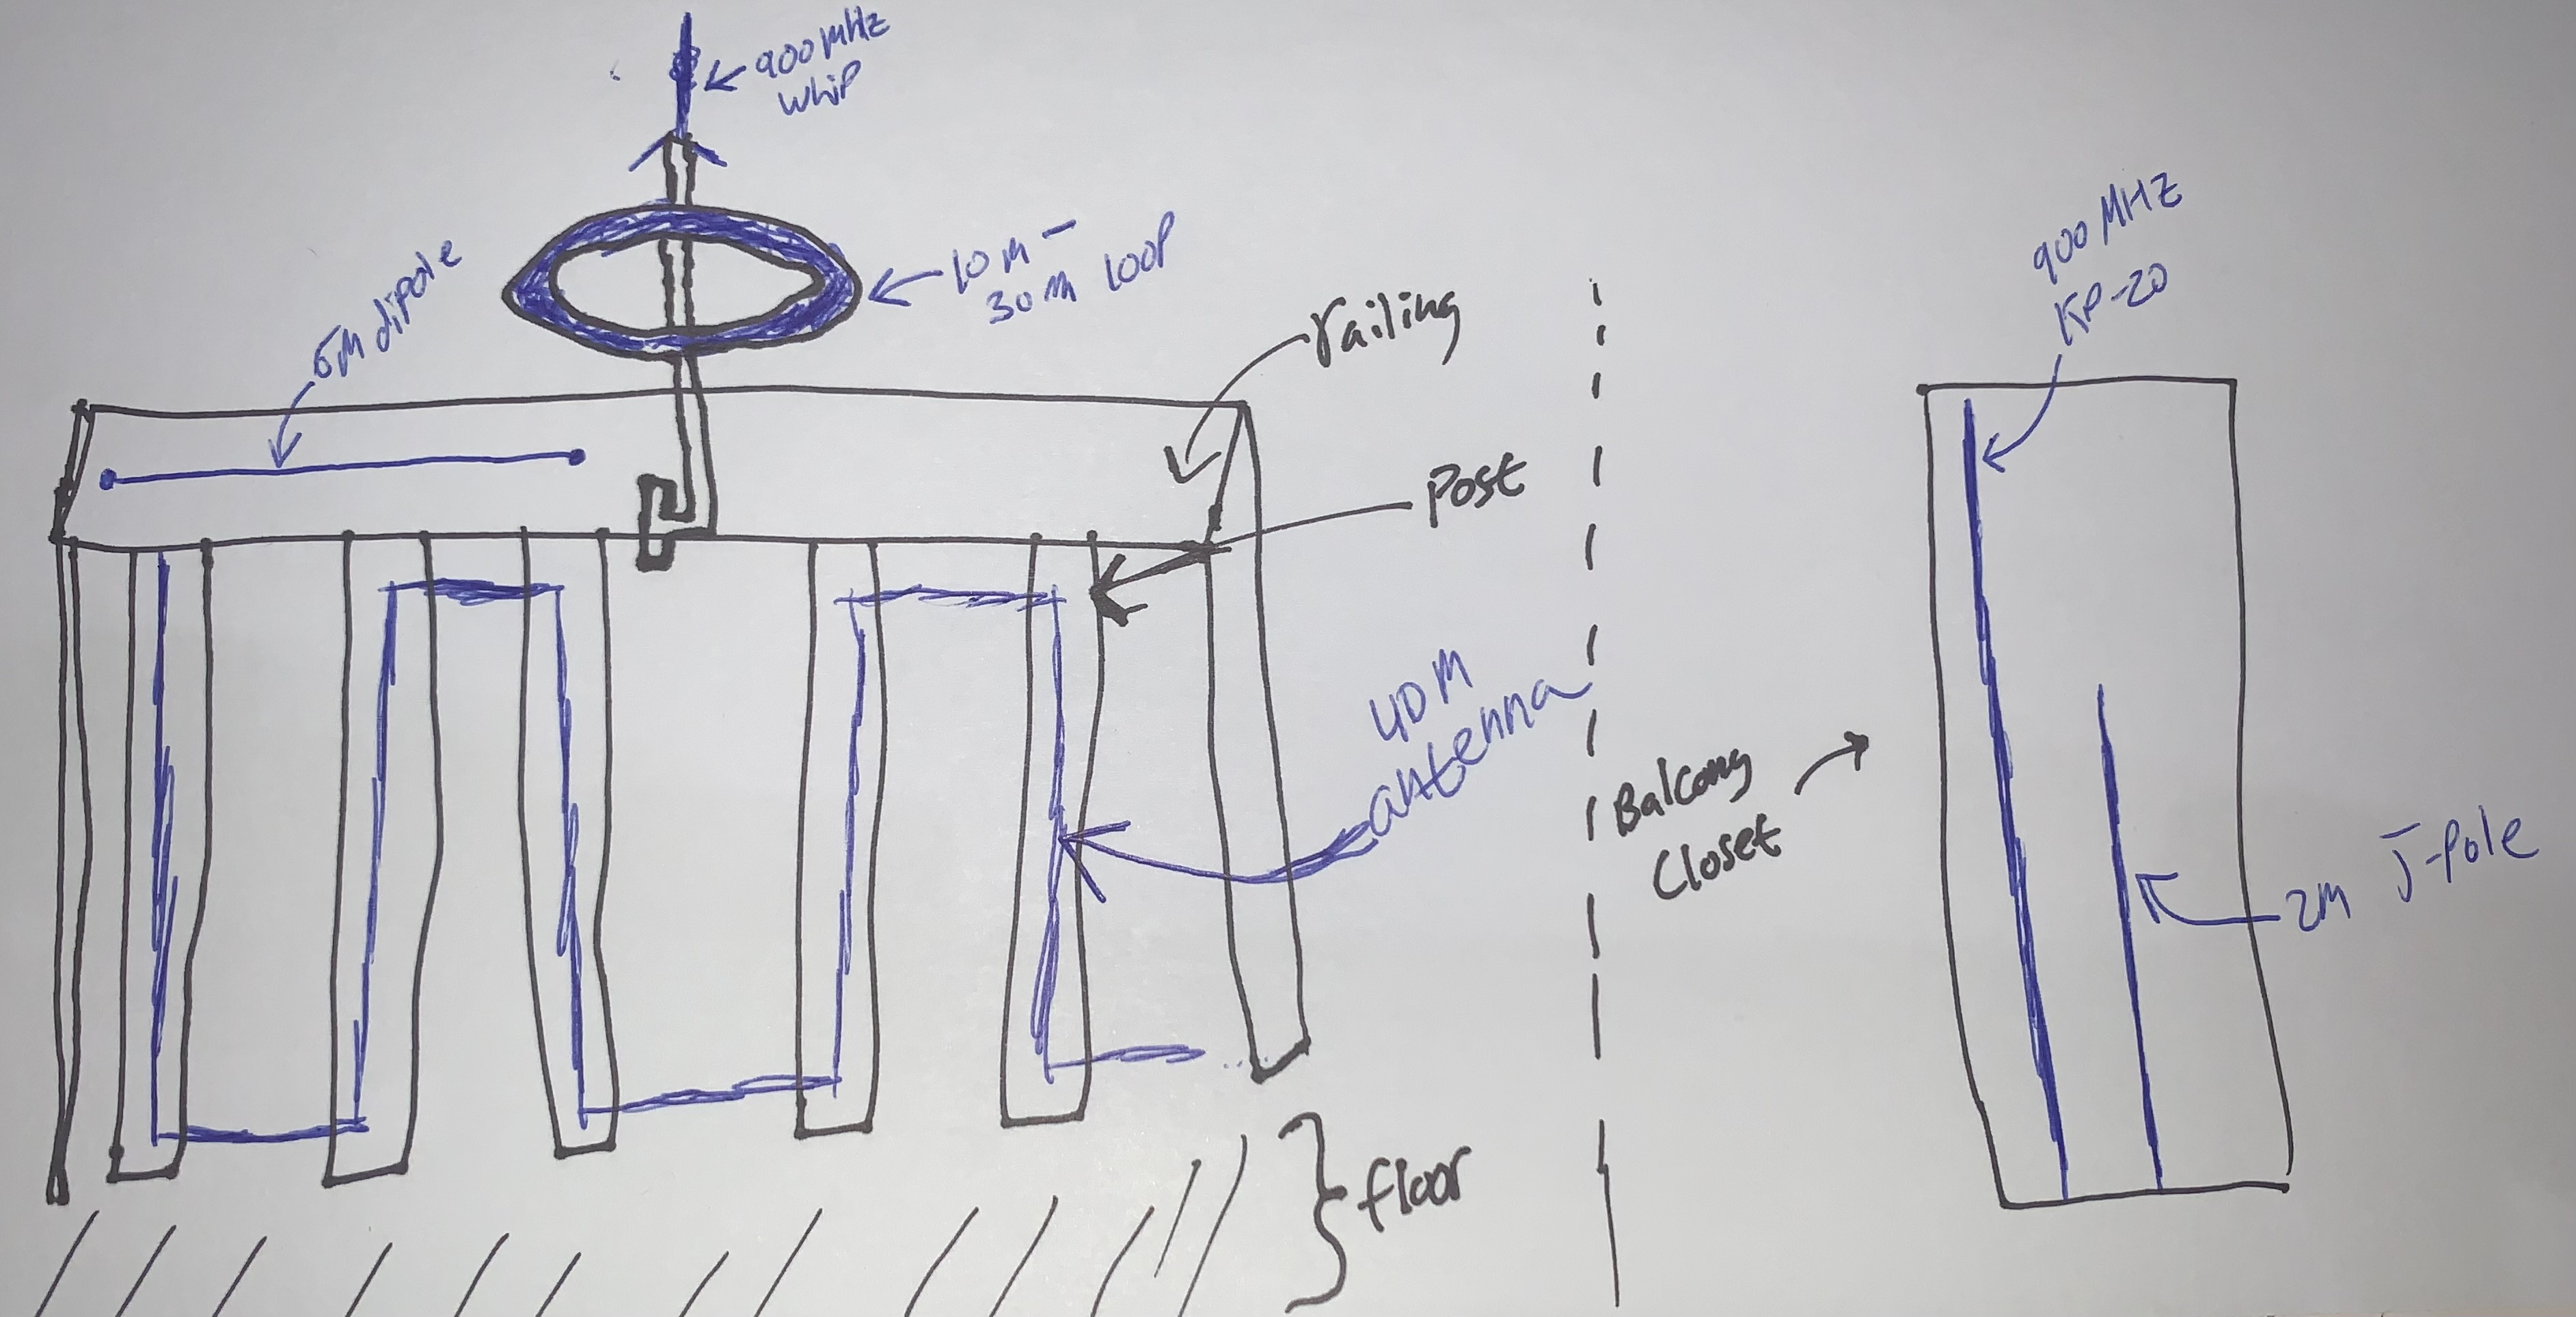 900 MHz
Whip
10m -
30m loop
6M dipole
railing
Post
40M
antenna
floor
Balcony
Closet
900 MHZ
KP-20
2M J-Pole